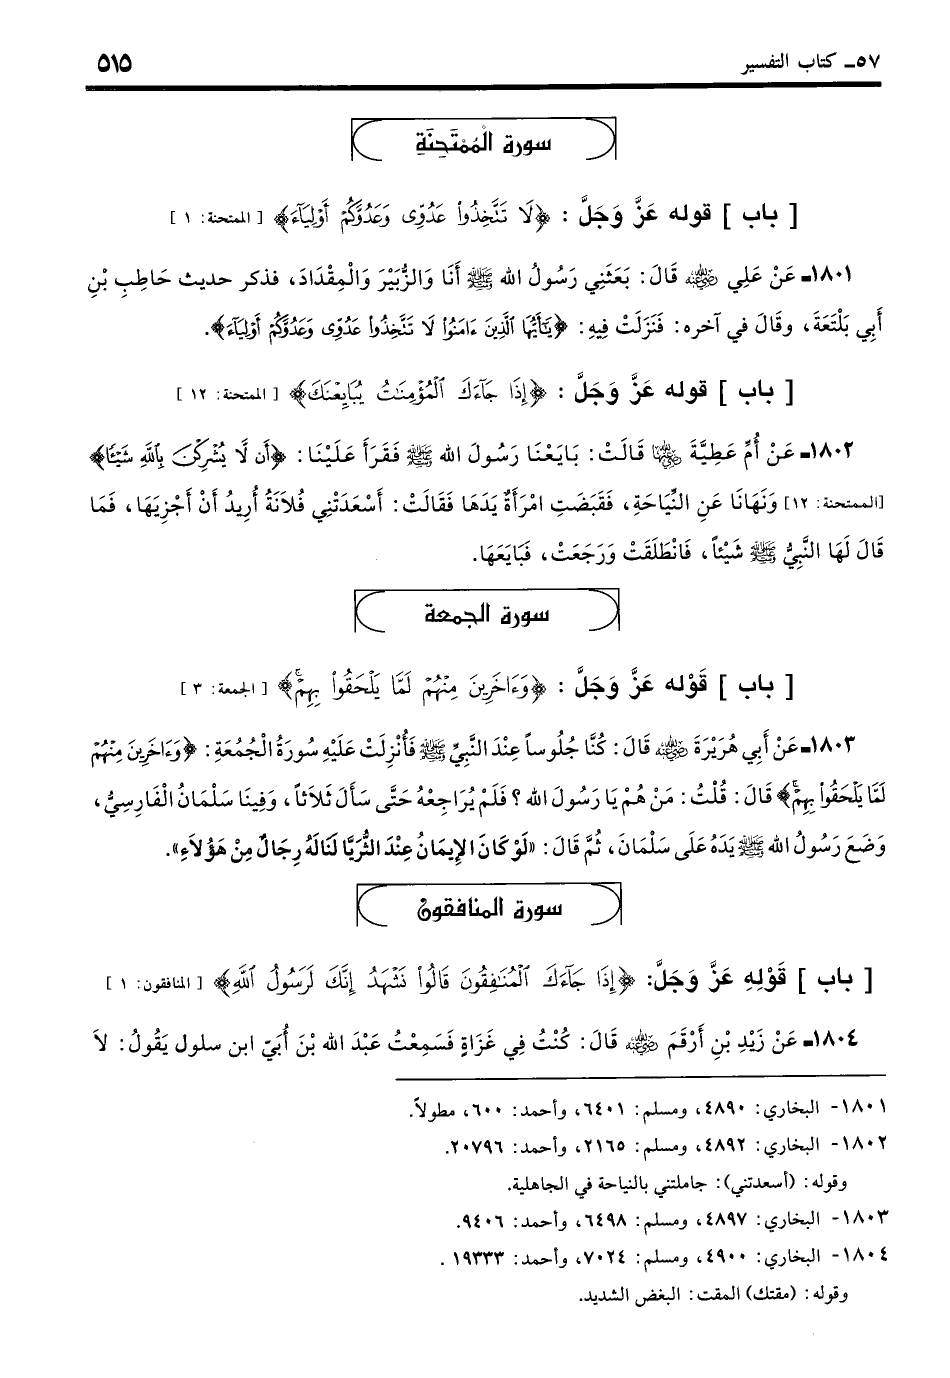 ٥٧ـ كتاب التفسير
٥١٥
سورة الْمُمْتَحِنَةِ
[ باب ] قوله عَزَّ وَجَلَّ : ﴿لَا تَتَّخِذُوا۟ عَدُوِّى وَعَدُوَّكُمْ أَوْلِيَآءَ﴾ [ الممتحنة: ١ ]
١٨٠١ـ عَنْ عَلِي رضي الله عنه قَالَ: بَعَثَنِي رَسُولُ الله ﷺ أَنَا وَالزُّبَيْرَ وَالْمِقْدَادَ، فذكر حديث حَاطِبِ بْنِ
أَبِي بَلْتَعَةَ، وقَالَ في آخره: فَنَزَلَتْ فِيهِ: ﴿يَـٰٓأَيُّهَا ٱلَّذِينَ ءَامَنُوا۟ لَا تَتَّخِذُوا۟ عَدُوِّى وَعَدُوَّكُمْ أَوْلِيَآءَ﴾.
[ باب ] قوله عَزَّ وَجَلَّ : ﴿إِذَا جَآءَكَ ٱلْمُؤْمِنَـٰتُ يُبَايِعْنَكَ﴾ [ الممتحنة: ١٢ ]
١٨٠٢ـ عَنْ أُمِّ عَطِيَّةَ رضي الله عنها قَالَتْ: بَايَعْنَا رَسُولَ الله ﷺ فَقَرَأَ عَلَيْنَا: ﴿أَن لَّا يُشْرِكْنَ بِٱللَّهِ شَيْـًٔا﴾
[الممتحنة: ١٢] وَنَهَانَا عَنِ النِّيَاحَةِ، فَقَبَضَتِ امْرَأَةٌ يَدَهَا فَقَالَتْ: أَسْعَدَتْنِي فُلَانَةُ أُرِيدُ أَنْ أَجْزِيَهَا، فَمَا
قَالَ لَهَا النَّبِيُّ ﷺ شَيْئاً، فَانْطَلَقَتْ وَرَجَعَتْ، فَبَايَعَهَا.
سورة الجمعة
[ باب ] قَوْله عَزَّ وَجَلَّ : ﴿وَءَاخَرِينَ مِنْهُمْ لَمَّا يَلْحَقُوا۟ بِهِمْ﴾ [ الجمعة: ٣ ]
١٨٠٣ـ عَنْ أَبِي هُرَيْرَةَ رضي الله عنه قَالَ: كُنَّا جُلُوساً عِنْدَ النَّبِيِّ ﷺ فَأُنْزِلَتْ عَلَيْهِ سُورَةُ الْجُمُعَةِ: ﴿وَءَاخَرِينَ مِنْهُمْ
لَمَّا يَلْحَقُوا۟ بِهِمْ﴾ قَالَ: قُلْتُ: مَنْ هُمْ يَا رَسُولَ الله ؟ فَلَمْ يُرَاجِعْهُ حَتَّى سَأَلَ ثَلَاثاً، وَفِينَا سَلْمَانُ الْفَارِسِيُّ،
وَضَعَ رَسُولُ الله ﷺ يَدَهُ عَلَى سَلْمَانَ، ثُمَّ قَالَ: «لَوْ كَانَ الإِيمَانُ عِنْدَ الثُّرَيَّا لَنَالَهُ رِجَالٌ مِنْ هَؤُلَاءِ».
سورة المنافقون
[ باب ] قَوْلِهِ عَزَّ وَجَلَّ: ﴿إِذَا جَآءَكَ ٱلْمُنَـٰفِقُونَ قَالُوا۟ نَشْهَدُ إِنَّكَ لَرَسُولُ ٱللَّهِ﴾ [ المنافقون: ١ ]
١٨٠٤ـ عَنْ زَيْدِ بْنِ أَرْقَمَ رضي الله عنه قَالَ: كُنْتُ فِي غَزَاةٍ فَسَمِعْتُ عَبْدَ الله بْنَ أُبَيّ ابن سلول يَقُولُ: لاَ
١٨٠١- البخاري: ٤٨٩٠، ومسلم: ٦٤٠١، وأحمد: ٦٠٠، مطولاً.
١٨٠٢- البخاري: ٤٨٩٢، ومسلم: ٢١٦٥، وأحمد: ٢٠٧٩٦.
وقوله: (أسعدتني): جاملتني بالنياحة في الجاهلية.
١٨٠٣- البخاري: ٤٨٩٧، ومسلم: ٦٤٩٨، وأحمد: ٩٤٠٦.
١٨٠٤- البخاري: ٤٩٠٠، ومسلم: ٧٠٢٤، وأحمد: ١٩٣٣٣ .
وقوله: (مقتك) المقت: البغض الشديد.